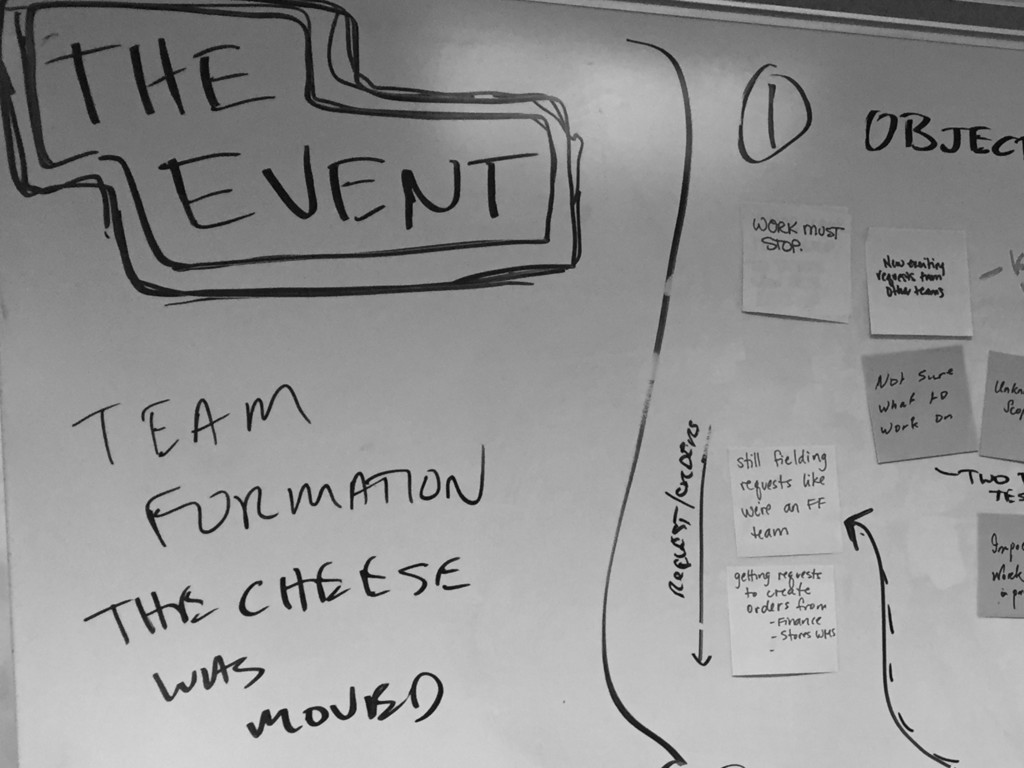 THE
EVENT
TEAM
FORMATION
THE CHEESE
WAS
MOVED
1
OBJECT
WORK MUST
STOP.
New exciting
requests from
other teams
Not sure
what to
work on
REQUEST/ORDERS
still fielding
requests like
we're an FF
team
getting requests
to create
orders from
- Finance
- Stores WMS
TWO T
TES
Work